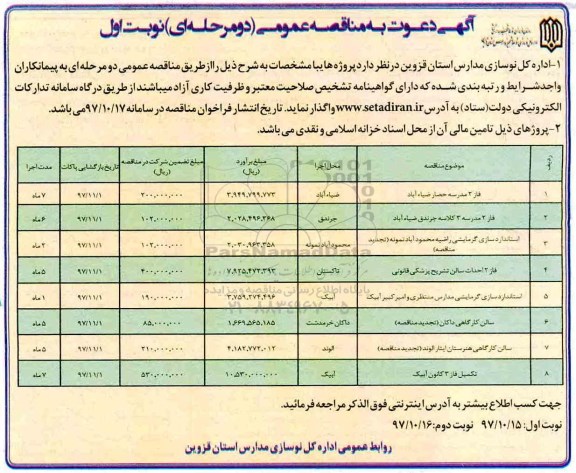 آگهی دعوت به مناقصه عمومی (دو مرحله‌ای) نوبت اول
۱-اداره کل نوسازی مدارس استان قزوین در نظر دارد پروژه ها یا مشخصات به شرح ذیل را از طریق مناقصه عمومی دو مرحله ای به پیمانکاران
واجد شرایط و رتبه بندی شده که دارای گواهینامه تشخیص صلاحیت معتبر و ظرفیت کاری آزاد میباشند از طریق درگاه سامانه تدارکات
الکترونیکی دولت (ستاد) به آدرس www.setadiran.ir واگذار نماید. تاریخ انتشار فراخوان مناقصه در سامانه ۹۷/۱۰/۱۷ می باشد.
۲-پروژهای ذیل تامین مالی آن از محل اسناد خزانه اسلامی و نقدی می باشد.
ردیف موضوع مناقصه محل اجرا مبلغ برآورد (ریال) مبلغ تضمین شرکت در مناقصه (ریال) تاریخ بازگشایی پاکات مدت اجرا
۱ فاز ۲ مدرسه حصار ضیاء آباد ضیاء آباد ۳,۹۴۹,۷۹۹,۷۷۳ ۲۰۰,۰۰۰,۰۰۰ ۹۷/۱۱/۱ ۷ ماه
۲ فاز ۲ مدرسه ۳ کلاسه جرندق ضیاء آباد جرندق ۲,۰۲۸,۴۹۶,۲۶۸ ۱۰۲,۰۰۰,۰۰۰ ۹۷/۱۱/۱ ۶ ماه
۳ استاندارد سازی گرمایشی راضیه محمود آباد نمونه (تجدید مناقصه) محمود آباد نمونه ۲,۰۳۰,۹۶۳,۳۵۸ ۱۰۲,۰۰۰,۰۰۰ ۹۷/۱۱/۱ ۲ ماه
۴ فاز ۲ احداث سالن تشریح پزشکی قانونی تاکستان ۷,۹۲۵,۴۷۳,۳۹۳ ۴۰۰,۰۰۰,۰۰۰ ۹۷/۱۱/۱ ۵ ماه
۵ استاندارد سازی گرمایشی مدارس منتظری و امیر کبیر آبیک آبیک ۳,۷۵۹,۲۷۴,۴۹۶ ۱۹۰,۰۰۰,۰۰۰ ۹۷/۱۱/۱ ۱ ماه
۶ سالن کارگاهی داکان (تجدید مناقصه) داکان خرمدشت ۱,۶۶۹,۵۶۵,۱۸۵ ۸۵,۰۰۰,۰۰۰ ۹۷/۱۱/۱ ۵ ماه
۷ سالن کارگاهی هنرستان ایثار الوند (تجدید مناقصه) الوند ۴,۱۸۲,۷۷۲,۰۱۲ ۲۱۰,۰۰۰,۰۰۰ ۹۷/۱۱/۱ ۵ ماه
۸ تکمیل فاز ۳ کانون آبیک آبیک ۱۰,۵۳۰,۰۰۰,۰۰۰ ۵۳۰,۰۰۰,۰۰۰ ۹۷/۱۱/۱ ۷ ماه
جهت کسب اطلاع بیشتر به آدرس اینترنتی فوق الذکر مراجعه فرمائید.
نوبت اول: ۹۷/۱۰/۱۵ نوبت دوم: ۹۷/۱۰/۱۶
روابط عمومی اداره کل نوسازی مدارس استان قزوین
ParsNamadData
پایگاه اطلاع رسانی مناقصه و مزایده